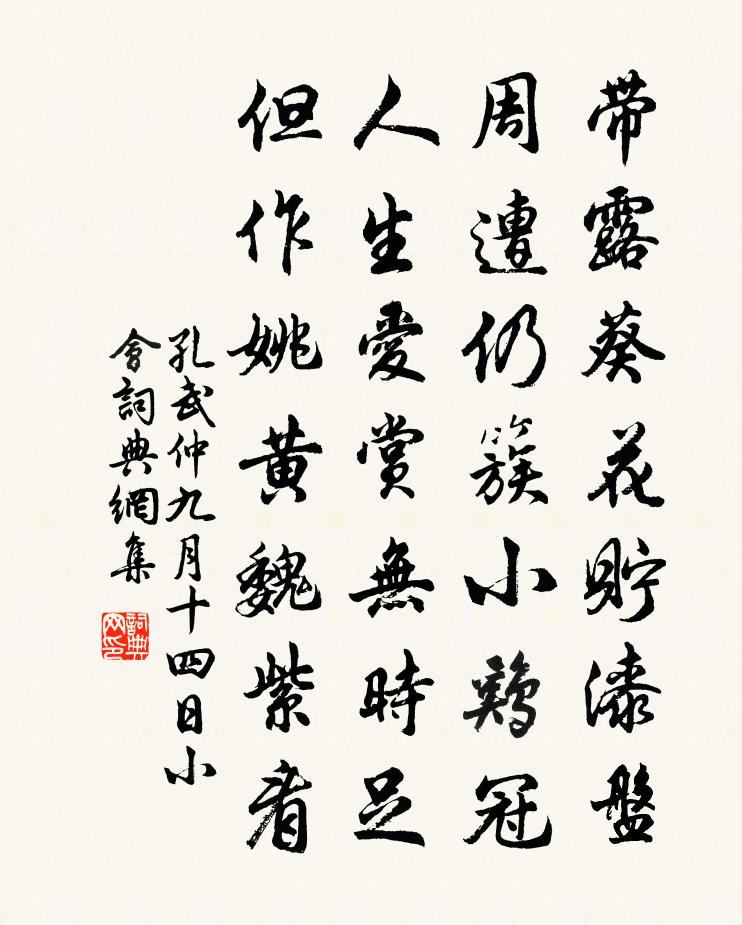 带露葵花貯漆盤
周遭仍簇小鷄冠
人生愛賞無時足
但作姚黄魏紫看
孔武仲九月十四日小
會詞典網集
詞典
网印